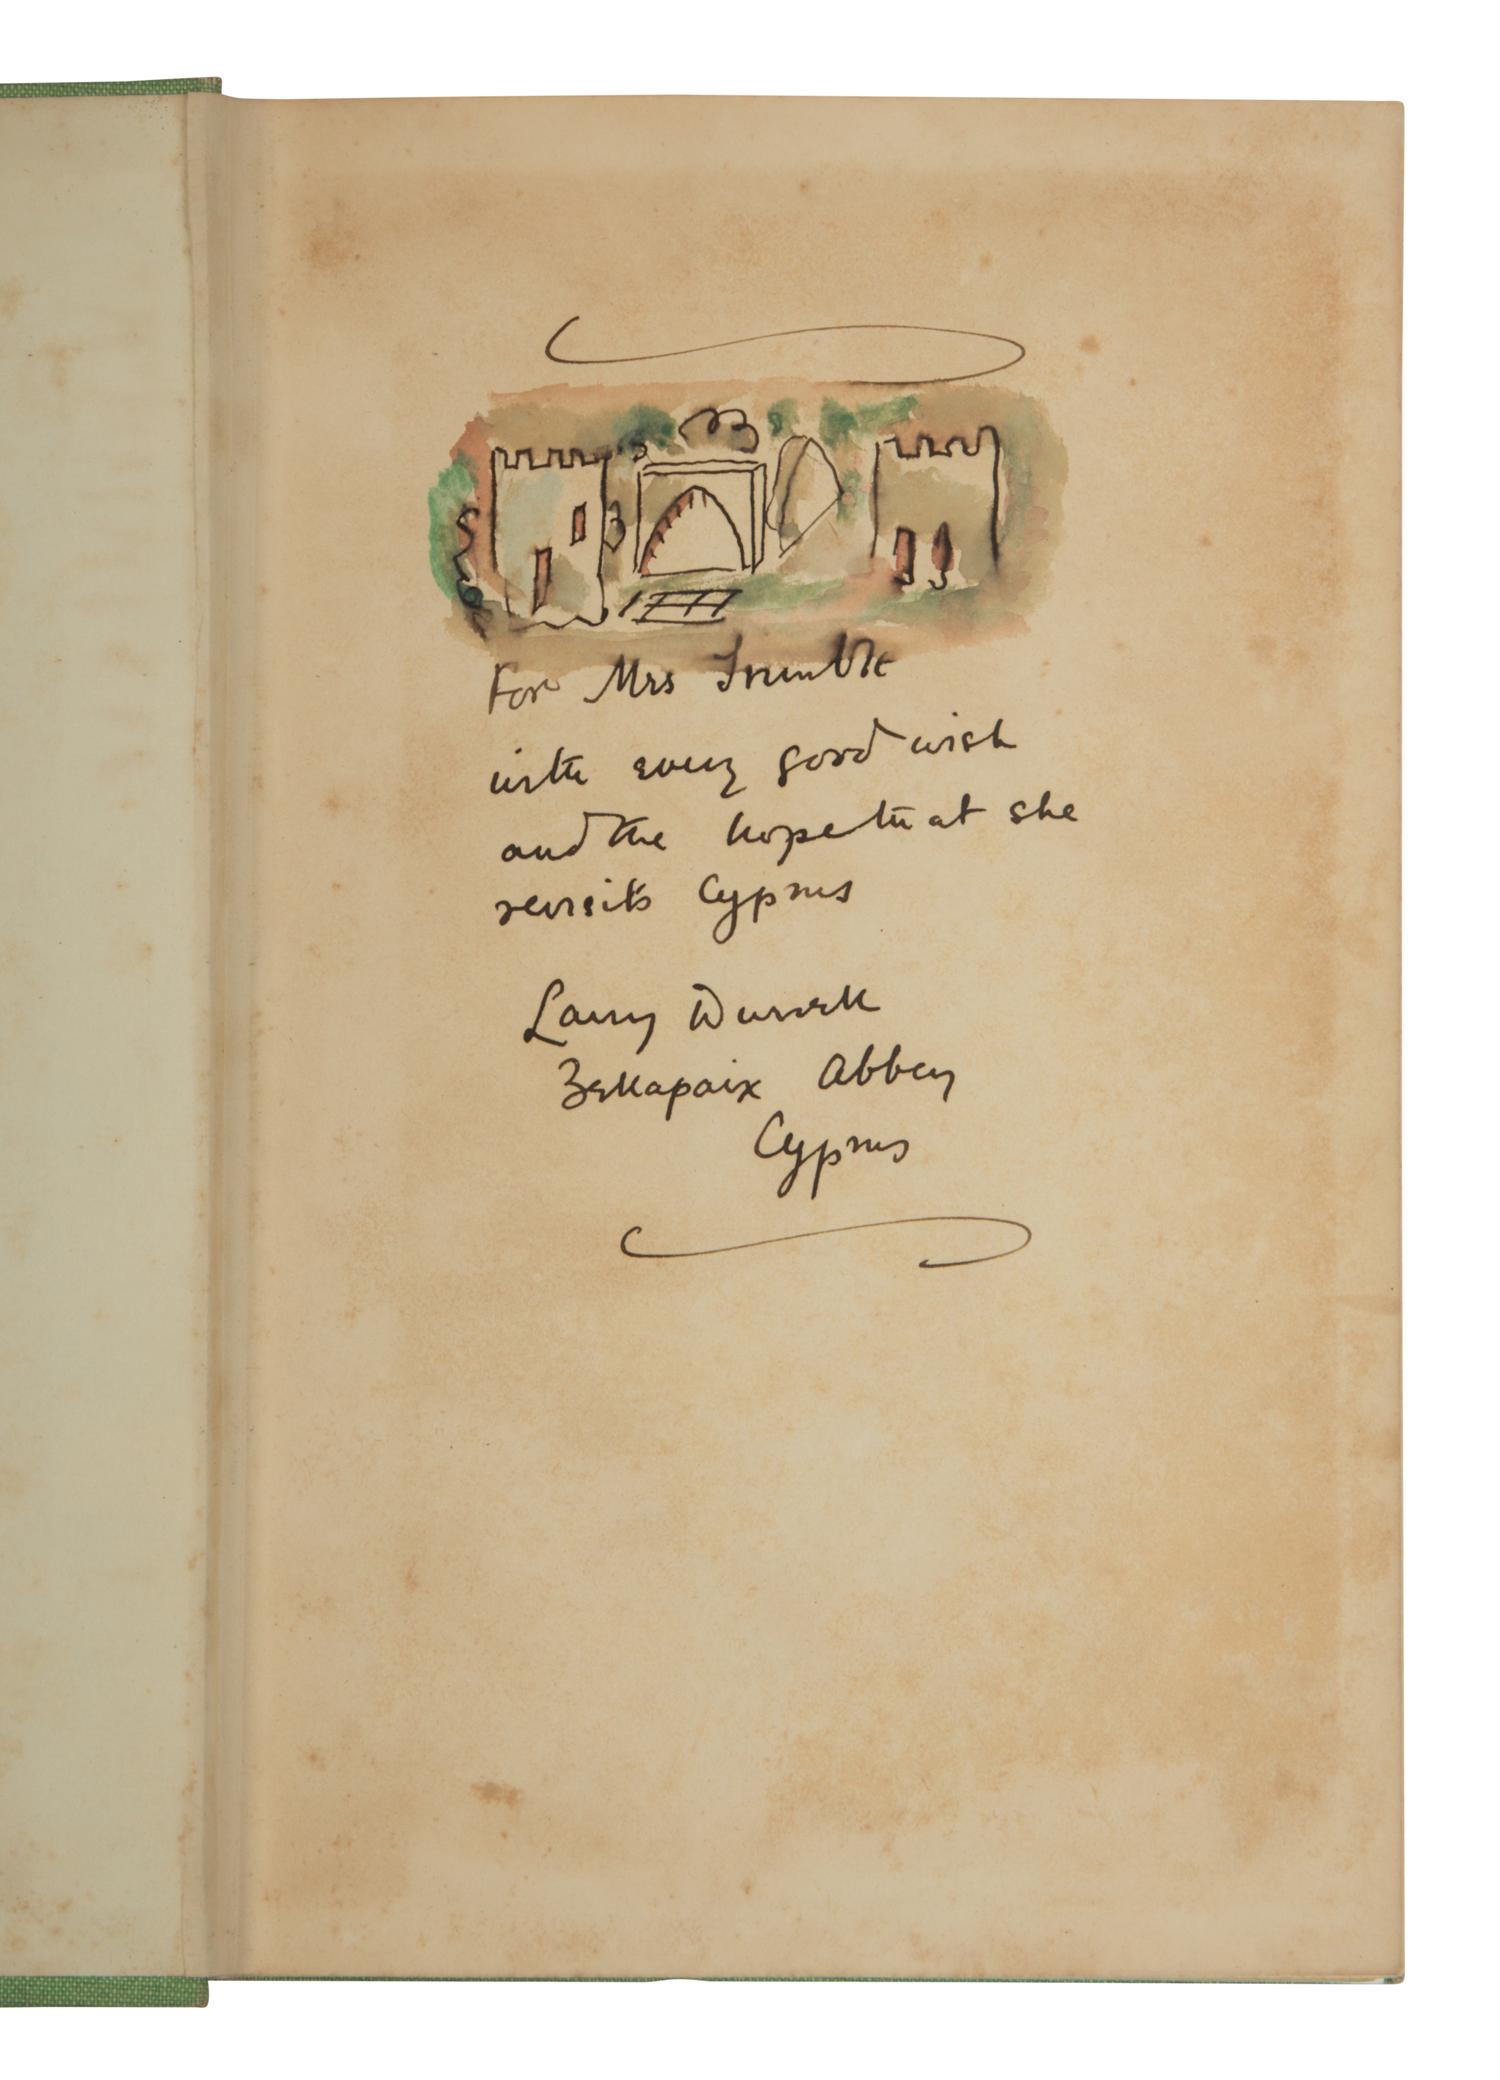 For Mrs Trumble
with every good wish
and the hope that she
revisits Cyprus
Larry Durrell
Bellapaix Abbey
Cyprus